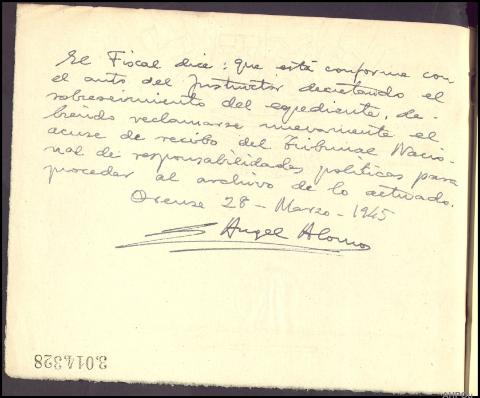 El Fiscal dice: que está conforme con
el auto del Instructor decretando el
sobreseimiento del expediente, de-
biendo reclamarse nuevamente el
acuse de recibo del Tribunal Nacio-
nal de responsabilidades políticas para
proceder al archivo de lo actuado.
Orense 28 - Marzo - 1945
Angel Alonso
3.014.328